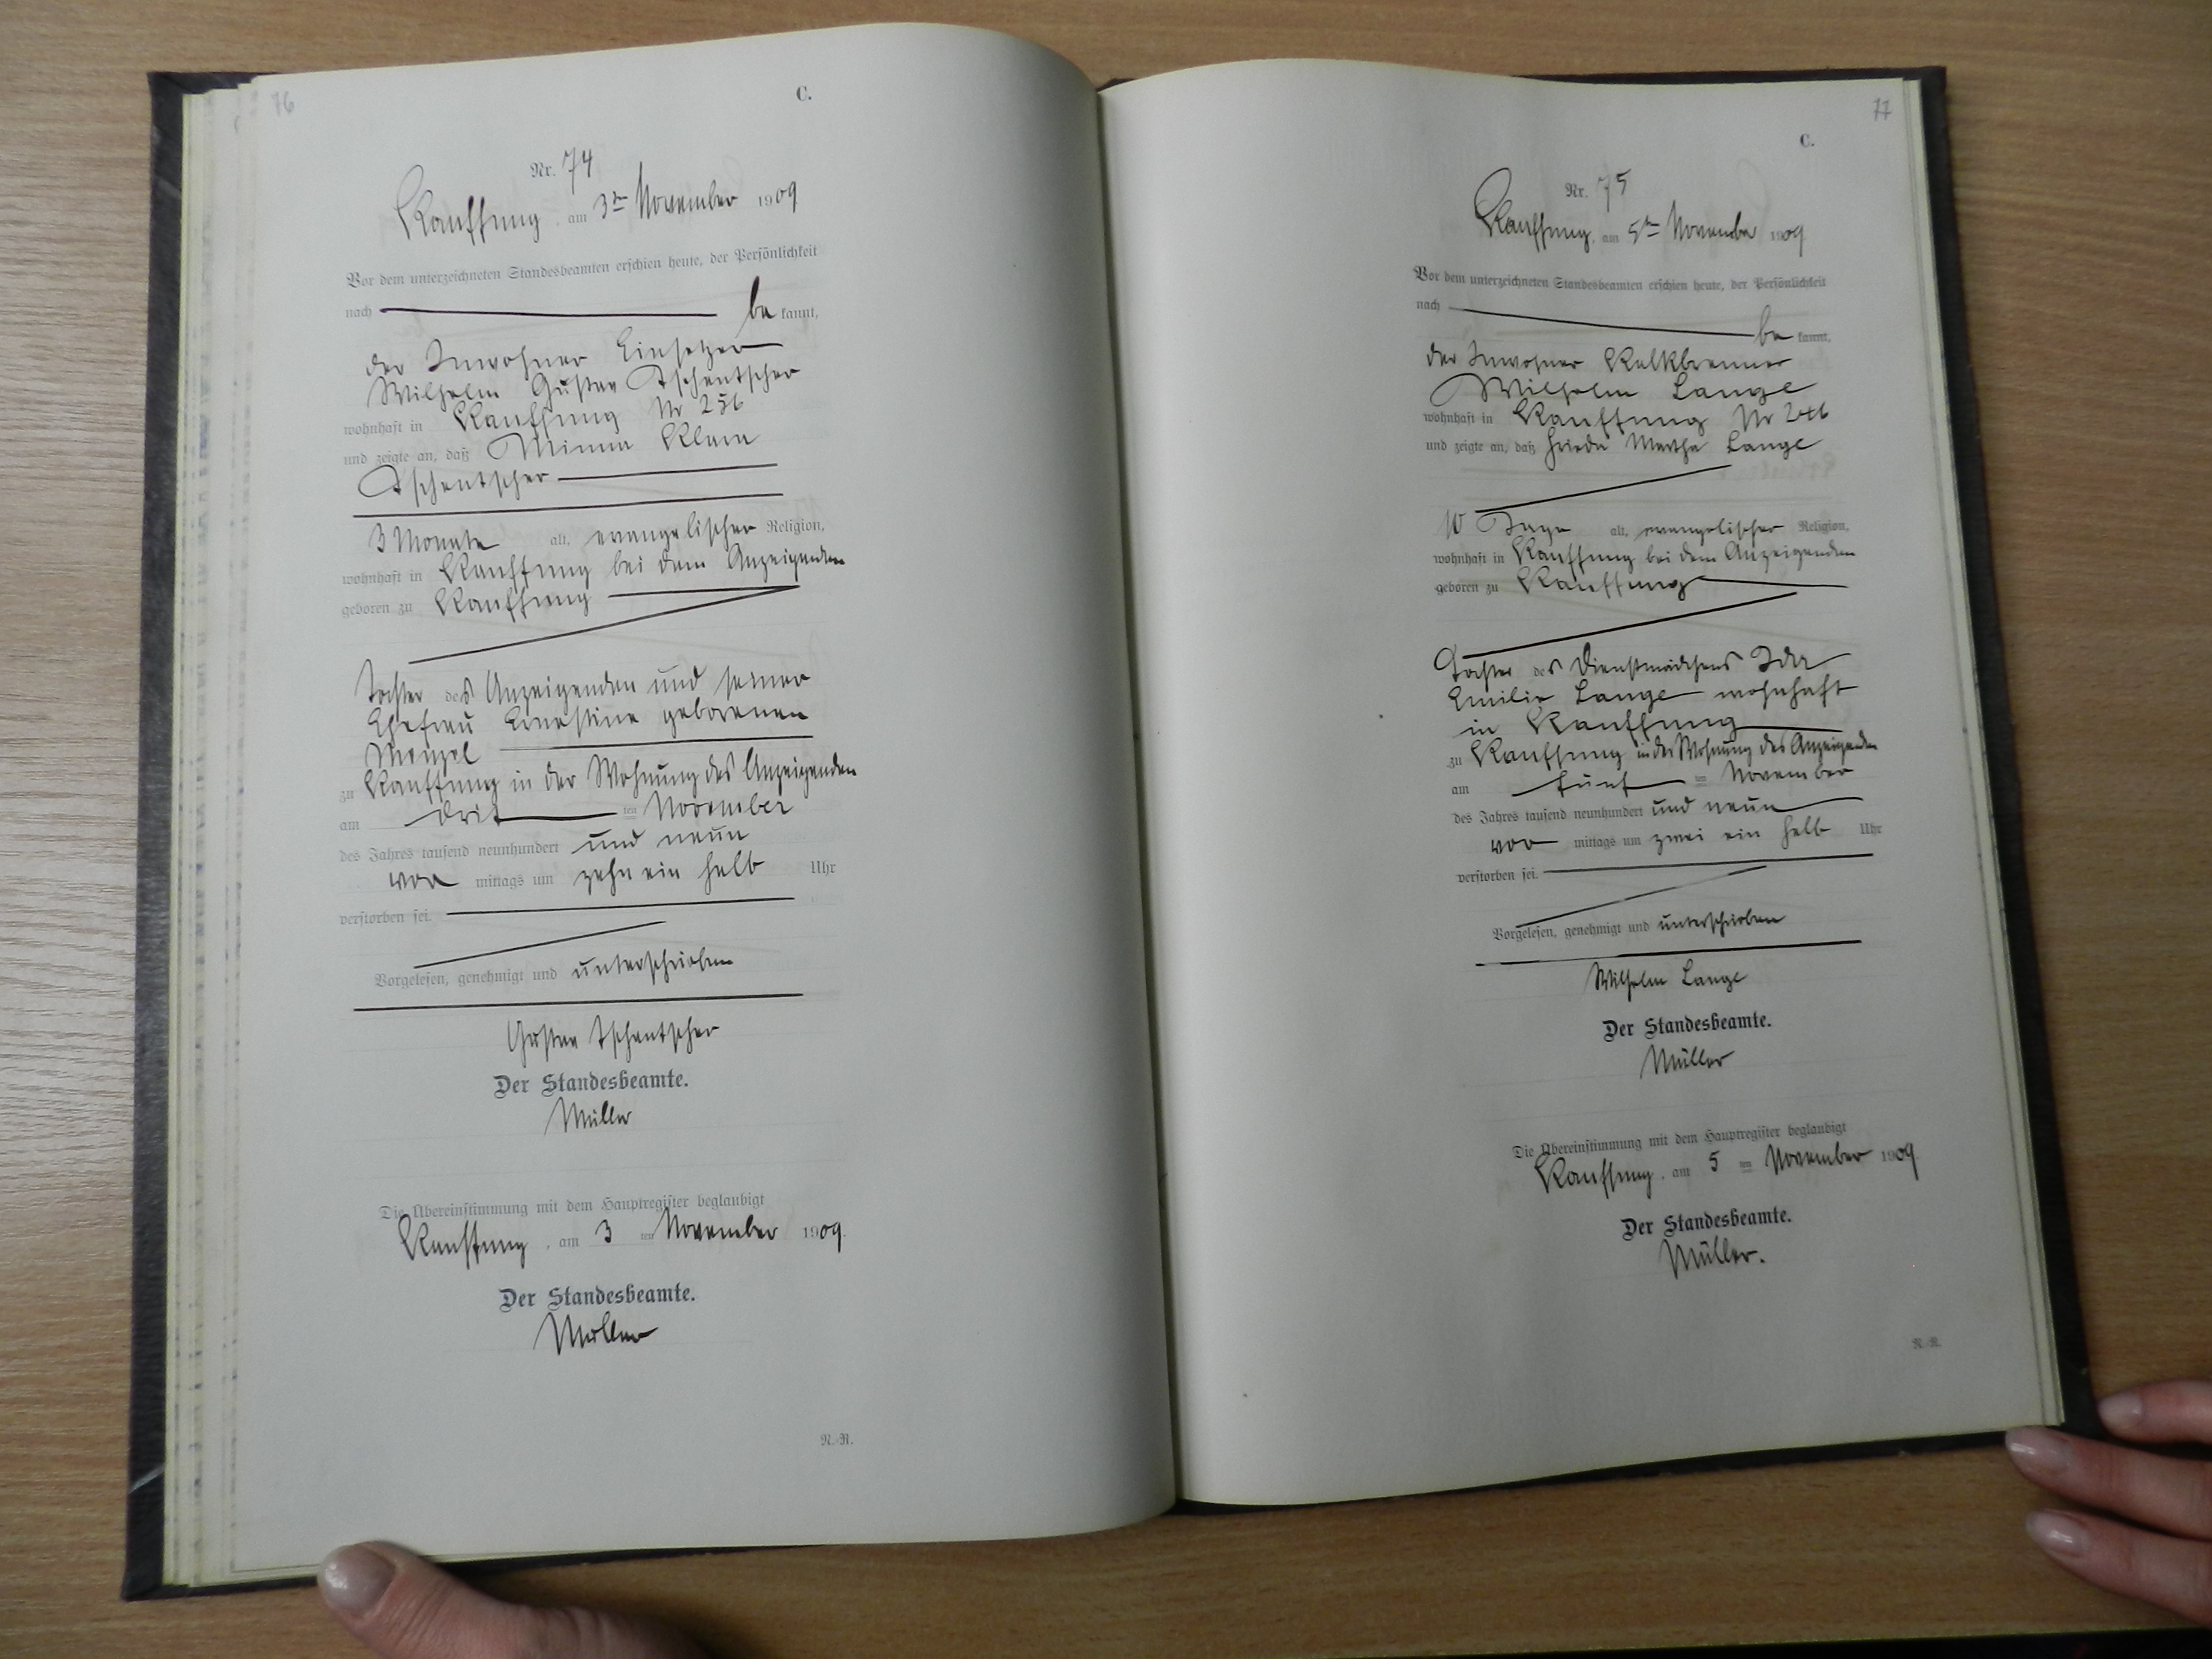 76
C.
Nr. 74
Kauffung, am 3ten November 1909
Vor dem unterzeichneten Standesbeamten erschien heute, der Persönlichkeit
nach be kannt,
der Inwohner Einsetzer
Wilhelm Gustav Tschentscher
wohnhaft in Kauffung Nr 256
und zeigte an, daß Minna Klara
Tschentscher
3 Monate alt, evangelischer Religion,
wohnhaft in Kauffung bei dem Anzeigenden
geboren zu Kauffung
Tochter des Anzeigenden und seiner
Ehefrau Ernestine geborenen
Menzel
zu Kauffung in der Wohnung des Anzeigenden
am drit ten November
des Jahres tausend neunhundert und neun
vor mittags um zehn ein halb Uhr
verstorben sei.
Vorgelesen, genehmigt und unterschrieben
Gustav Tschentscher
Der Standesbeamte.
Müller
Die Übereinstimmung mit dem Hauptregister beglaubigt
Kauffung, am 3 ten November 1909.
Der Standesbeamte.
Müller
R.-R.
77
C.
Nr. 75
Kauffung, am 5ten November 1909
Vor dem unterzeichneten Standesbeamten erschien heute, der Persönlichkeit
nach be kannt,
der Inwohner Kalkbrenner
Wilhelm Lange
wohnhaft in Kauffung Nr 246
und zeigte an, daß Frieda Martha Lange
10 Tage alt, evangelischer Religion,
wohnhaft in Kauffung bei dem Anzeigenden
geboren zu Kauffung
Tochter des Dienstmädchens Ida
Emilie Lange wohnhaft
in Kauffung
zu Kauffung in der Wohnung des Anzeigenden
am fünf ten November
des Jahres tausend neunhundert und neun
vor mittags um zwei ein halb Uhr
verstorben sei.
Vorgelesen, genehmigt und unterschrieben
Wilhelm Lange
Der Standesbeamte.
Müller
Die Übereinstimmung mit dem Hauptregister beglaubigt
Kauffung, am 5 ten November 1909.
Der Standesbeamte.
Müller.
R.-R.